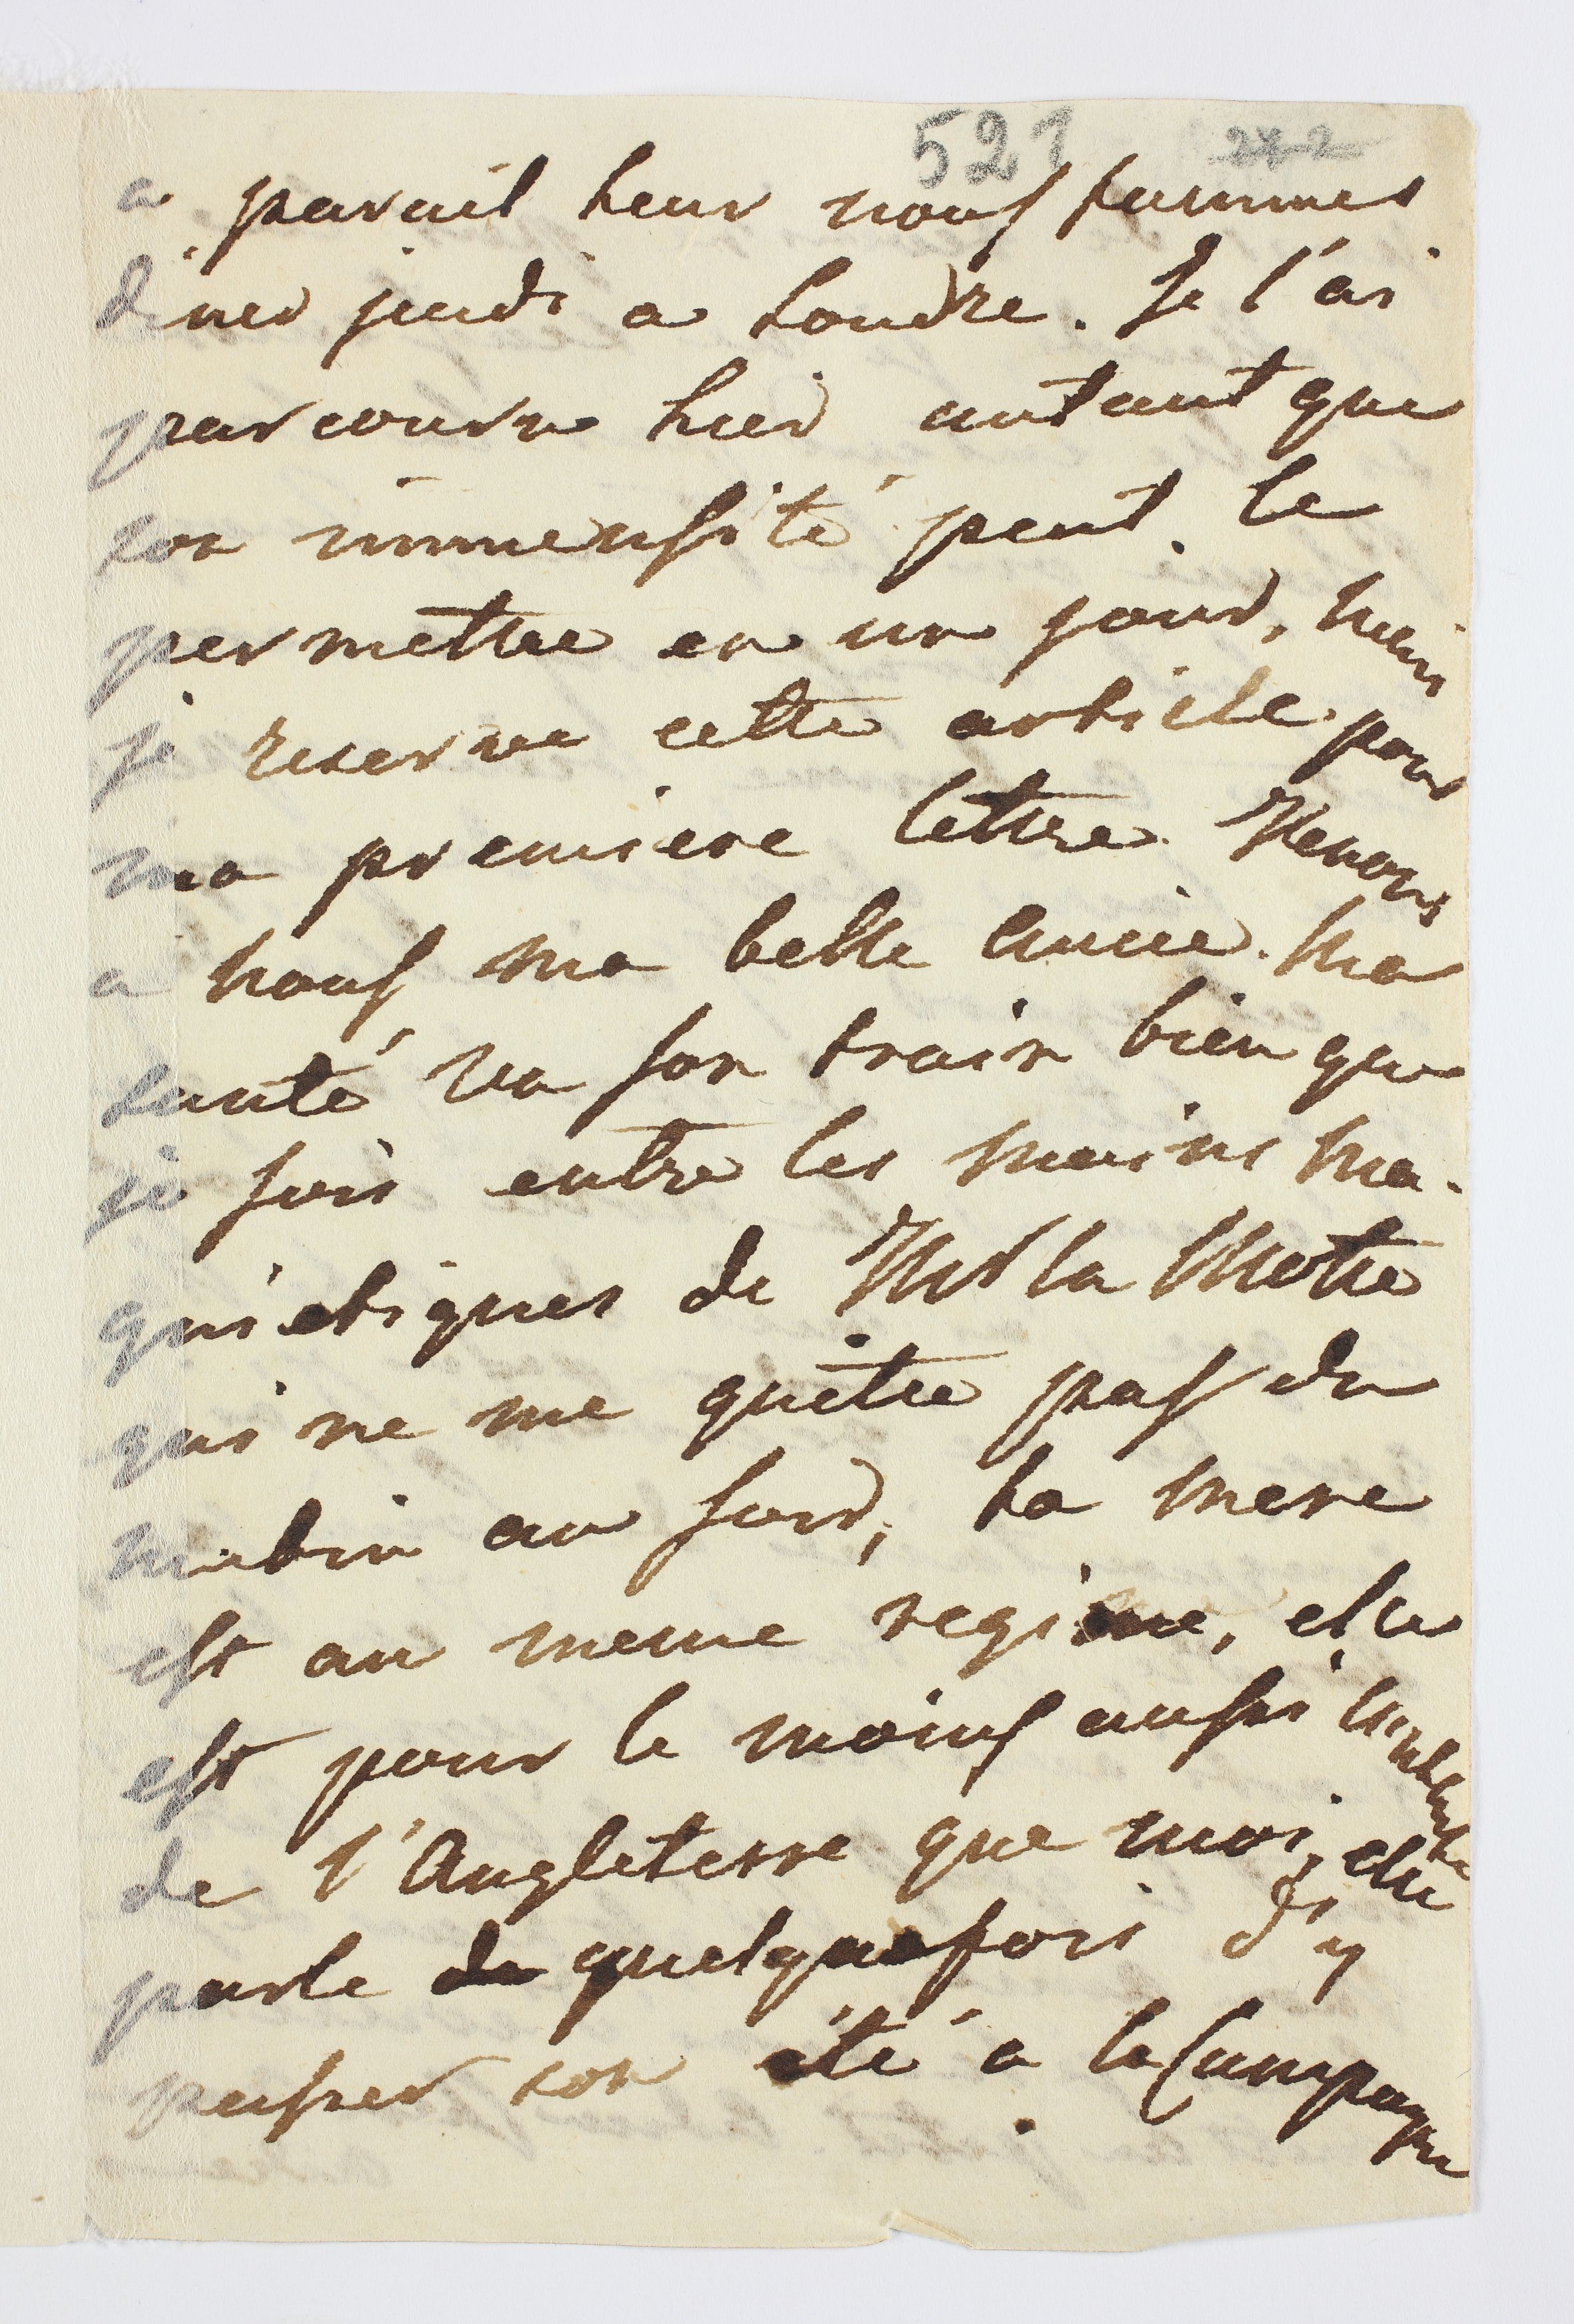 521 272
a pareil heur nous sommes
diner jeudi a Londre. Je l'ai
parcourru hier autant que
son immensité peut le
permettre en un jour, mais
je reserve cette article pour
ma premiere lettre. Venons
a nous ma belle Amie. Ma
santé va son train bien que
je sois entre les mains ma-
gnietiques de Md la Motte
qui ne me quitte pas du
matin au soir, ta mere
est au meme regime, elle
est pour le moins aussi contente
de l'Angleterre que moi, elle
parle de quelquefois d'y
passer son été a la Campagne